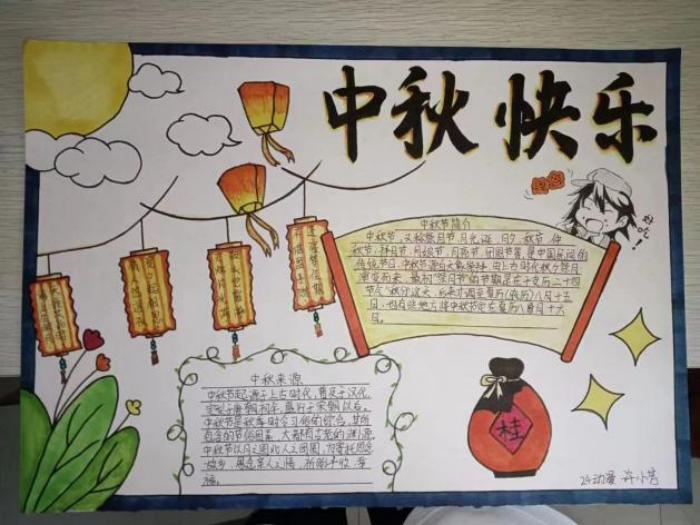 中秋快乐
好吃！
中秋节简介
中秋节，又称祭月节、月光诞、月夕、秋节、仲
秋节、拜月节、月娘节、月亮节、团圆节等，是中国民间的
传统节日。中秋节源自天象崇拜，由上古时代秋夕祭月
演变而来。最初“祭月节”的节期是在干支历二十四
节气“秋分”这天，后来才调至夏历(农历)八月十五
日，也有些地方将中秋节定在夏历八月十六
日。
中秋来源
中秋节起源于上古时代，普及于汉代，
定型于唐朝初年，盛行于宋朝以后。
中秋节是秋季时令习俗的综合，其所
包含的节俗因素，大都有古老的渊源。
中秋节以月之圆兆人之团圆，为寄托思念
故乡，思念亲人之情，祈盼丰收、幸
福。
桂
24动漫